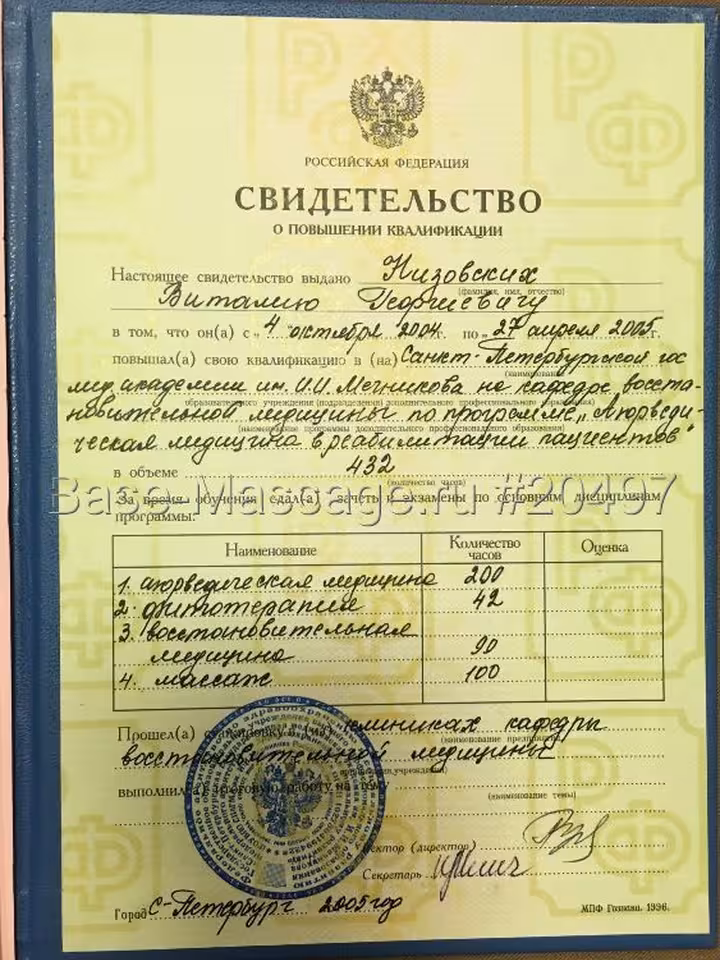 РОССИЙСКАЯ ФЕДЕРАЦИЯ
СВИДЕТЕЛЬСТВО
О ПОВЫШЕНИИ КВАЛИФИКАЦИИ
Настоящее свидетельство выдано Низовских
(фамилия, имя, отчество)
Виталию Георгиевичу
в том, что он(а) с „4“ октября 2004г. по „27“ апреля 2005г.
повышал(а) свою квалификацию в (на) Санкт-Петербургской гос
(наименование
мед. академии им. И.И. Мечникова на кафедре восста-
образовательного учреждения (подразделения) дополнительного профессионального образования)
новительной медицины по программе „Аюрведи-
(наименование программы дополнительного профессионального образования)
ческая медицина в реабилитации пациентов"
в объеме 432
(количество часов)
Base-Massage.ru #20497
За время обучения сдал(а) зачеты и экзамены по основным дисциплинам
программы:
Наименование Количество часов Оценка
1. аюрведическая медицина 200
2. фитотерапия 42
3. восстановительная
медицина 90
4. массаж 100
Прошел(а) стажировку в клиниках кафедры
(наименование предприятия,
восстановительной медицины
выполнил(а) итоговую работу на тему
(наименование темы)
Ректор (директор)
Секретарь
Город С-Петербург 2005 год
МПФ Гознака. 1996.